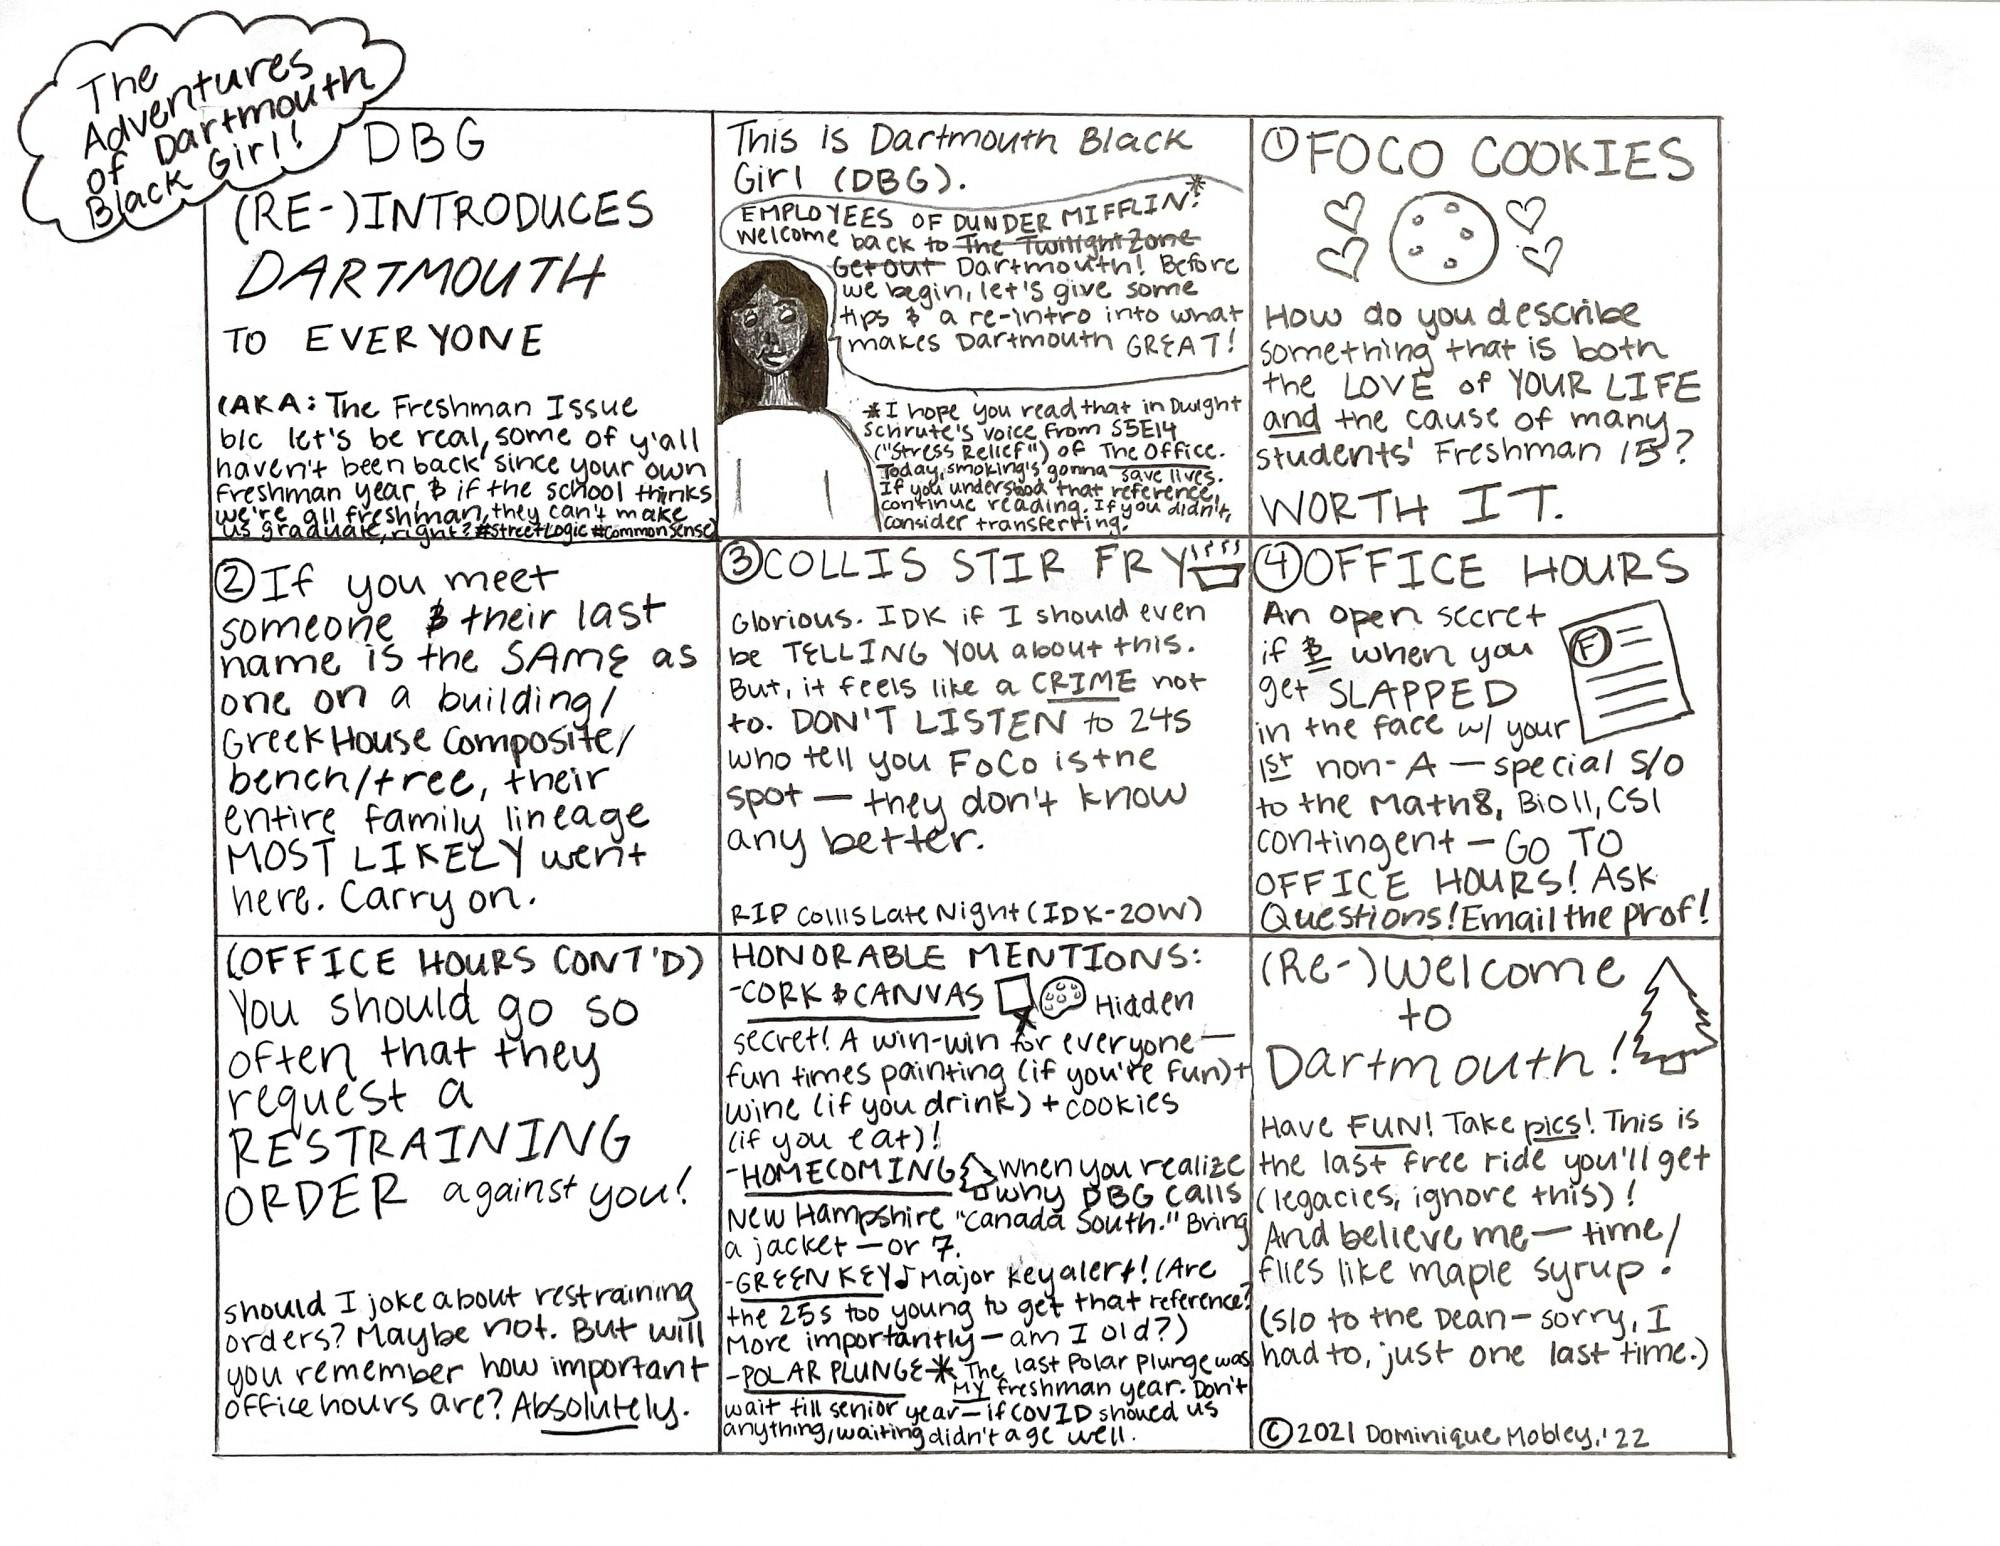 The
Adventures
of Dartmouth
Black Girl!
DBG
(RE-)INTRODUCES
DARTMOUTH
TO EVERYONE
(AKA: The Freshman Issue
b/c let's be real, some of y'all
haven't been back since your own
freshman year, & if the school thinks
we're all freshman, they can't make
us graduate, right? #StreetLogic #CommonSense)
This is Dartmouth Black
Girl (DBG).
EMPLOYEES OF DUNDER MIFFLIN!*
Welcome back to The Twilight Zone
Get out Dartmouth! Before
we begin, let's give some
tips & a re-intro into what
makes Dartmouth GREAT!
*I hope you read that in Dwight
Schrute's voice from S5E14
("Stress Relief") of The Office.
Today, smoking's gonna save lives.
If you understood that reference,
continue reading. If you didn't,
consider transferring.
① FOCO COOKIES
How do you describe
something that is both
the LOVE of YOUR LIFE
and the cause of many
students' Freshman 15?
WORTH IT.
② If you meet
someone & their last
name is the SAME as
one on a building/
Greek House Composite/
bench/tree, their
entire family lineage
MOST LIKELY went
here. Carry on.
③ COLLIS STIR FRY
Glorious. IDK if I should even
be TELLING YOU about this.
But, it feels like a CRIME not
to. DON'T LISTEN to 24s
who tell you FoCo is the
spot — they don't know
any better.
RIP Collis Late Night (IDK-20W)
④ OFFICE HOURS
An open secret
if & when you
get SLAPPED
in the face w/ your
1st non-A — special S/O
to the Math8, Bio11, CS1
contingent — GO TO
OFFICE HOURS! Ask
Questions! Email the prof!
F
(OFFICE HOURS CONT'D)
You should go so
often that they
request a
RESTRAINING
ORDER against you!
Should I joke about restraining
orders? Maybe not. But will
you remember how important
office hours are? Absolutely.
HONORABLE MENTIONS:
-CORK & CANVAS Hidden
secret! A win-win for everyone—
fun times painting (if you're fun)+
wine (if you drink) + cookies
(if you eat)!
-HOMECOMING When you realize
why DBG calls
New Hampshire "Canada South." Bring
a jacket — or 7.
-GREEN KEY♪ Major key alert! (Are
the 25s too young to get that reference?
More importantly — am I old?)
-POLAR PLUNGE-* The last Polar Plunge was
MY freshman year. Don't
wait till senior year — if COVID showed us
anything, waiting didn't age well.
(Re-)Welcome
to
Dartmouth!
Have FUN! Take pics! This is
the last free ride you'll get
(legacies, ignore this)!
And believe me — time
flies like maple syrup!
(S/O to the Dean — sorry, I
had to, just one last time.)
© 2021 Dominique Mobley, '22